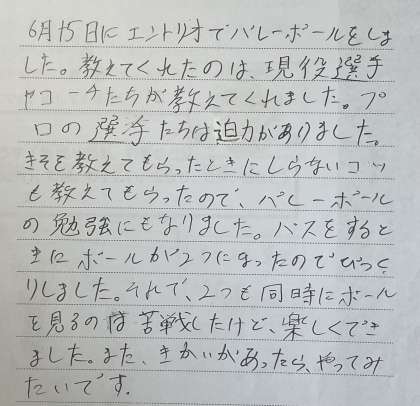 6月15日にエントリオでバレーボールをしま
した。教えてくれたのは、現役選手
やコーチたちが教えてくれました。プ
ロの選手たちは迫力がありました。
きそを教えてもらったときにしらないコツ
も教えてもらったので、バレーボール
の勉強にもなりました。パスをすると
きにボールが2つになったのでびっく
りしました。それで、2つも同時にボール
を見るのは苦戦したけど、楽しくでき
ました。また、きかいがあったら、やってみ
たいです.